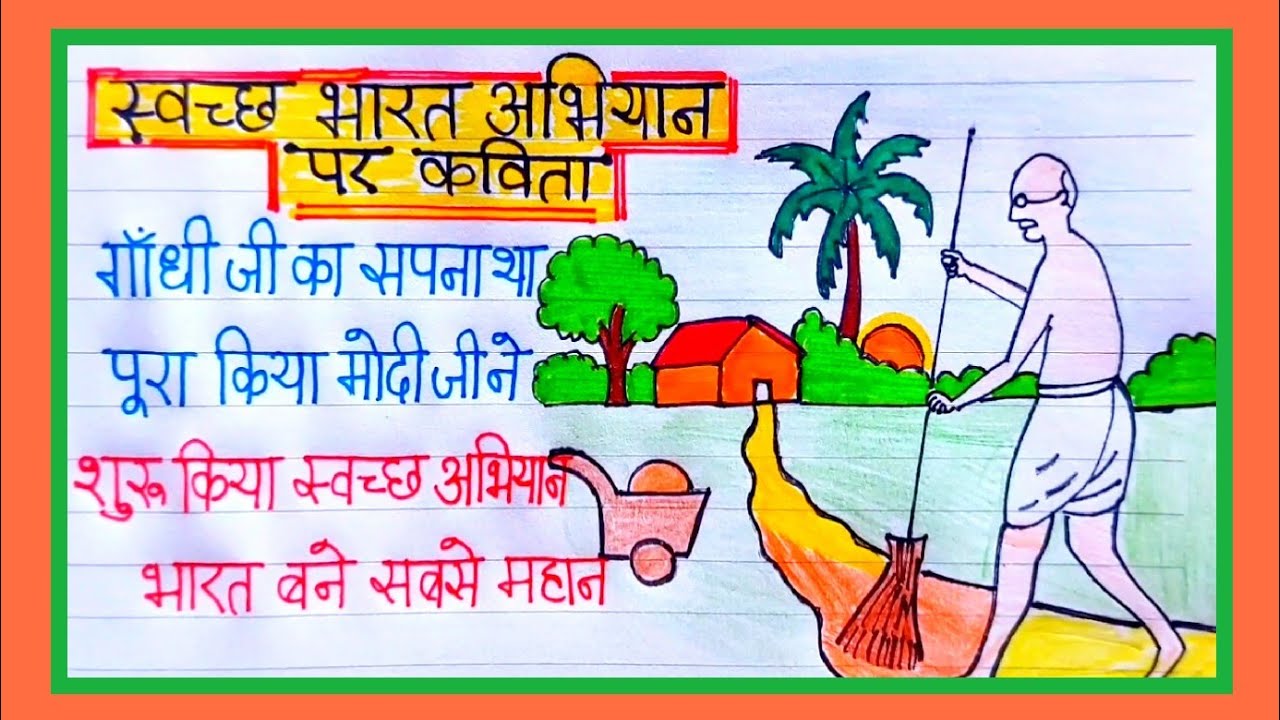 स्वच्छ भारत अभियान
पर कविता
गाँधी जी का सपना था
पूरा किया मोदी जी ने
शुरू किया स्वच्छ अभियान
भारत बने सबसे महान